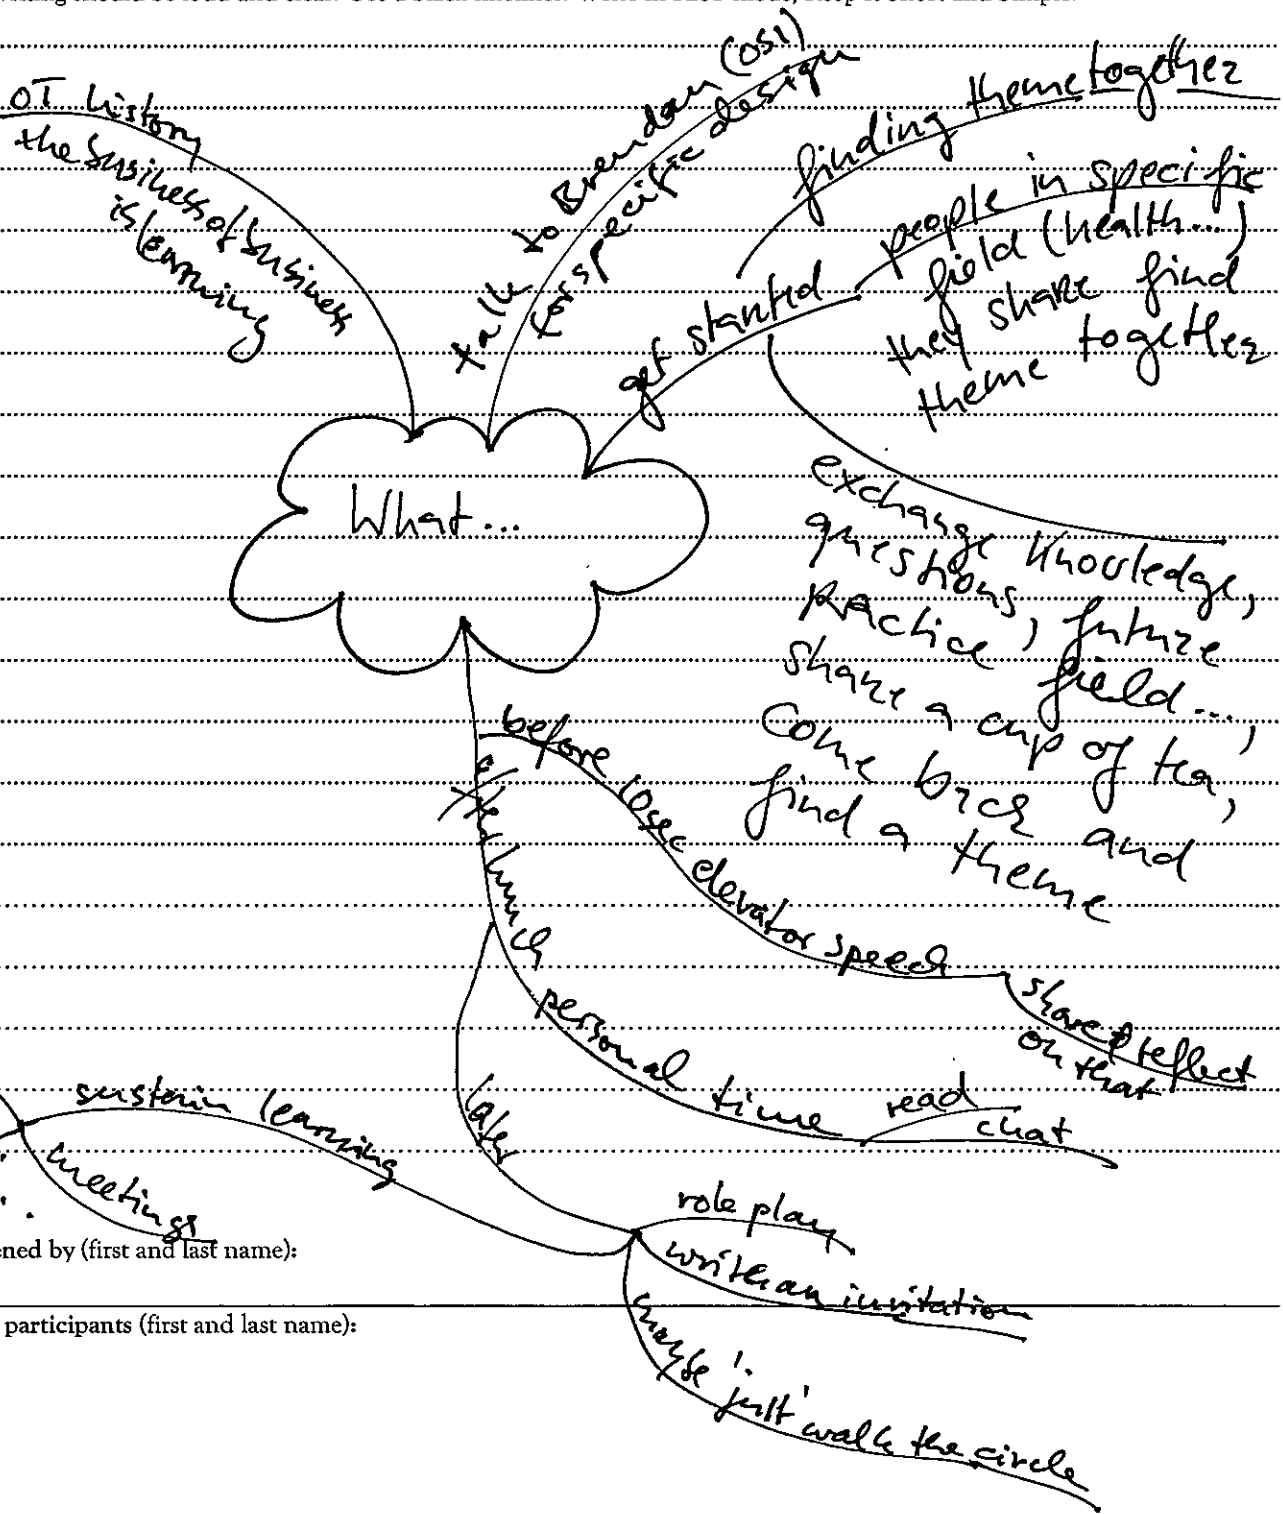 OT history
the business of business
is learning
talk to Brendan (OSI)
for specific design
finding theme together
get started
people in specific
field (health...)
they share find
theme together
What...
exchange knowledge,
questions,
practice, future
field...,
share a cup of tea,
come back and
find a theme
before 10sec elevator speech
share & reflect
on that
after lunch
personal time
read
chat
later
sustain learning
meetings
role play
write an invitation
maybe 'just' walk the circle
ened by (first and last name):
participants (first and last name):